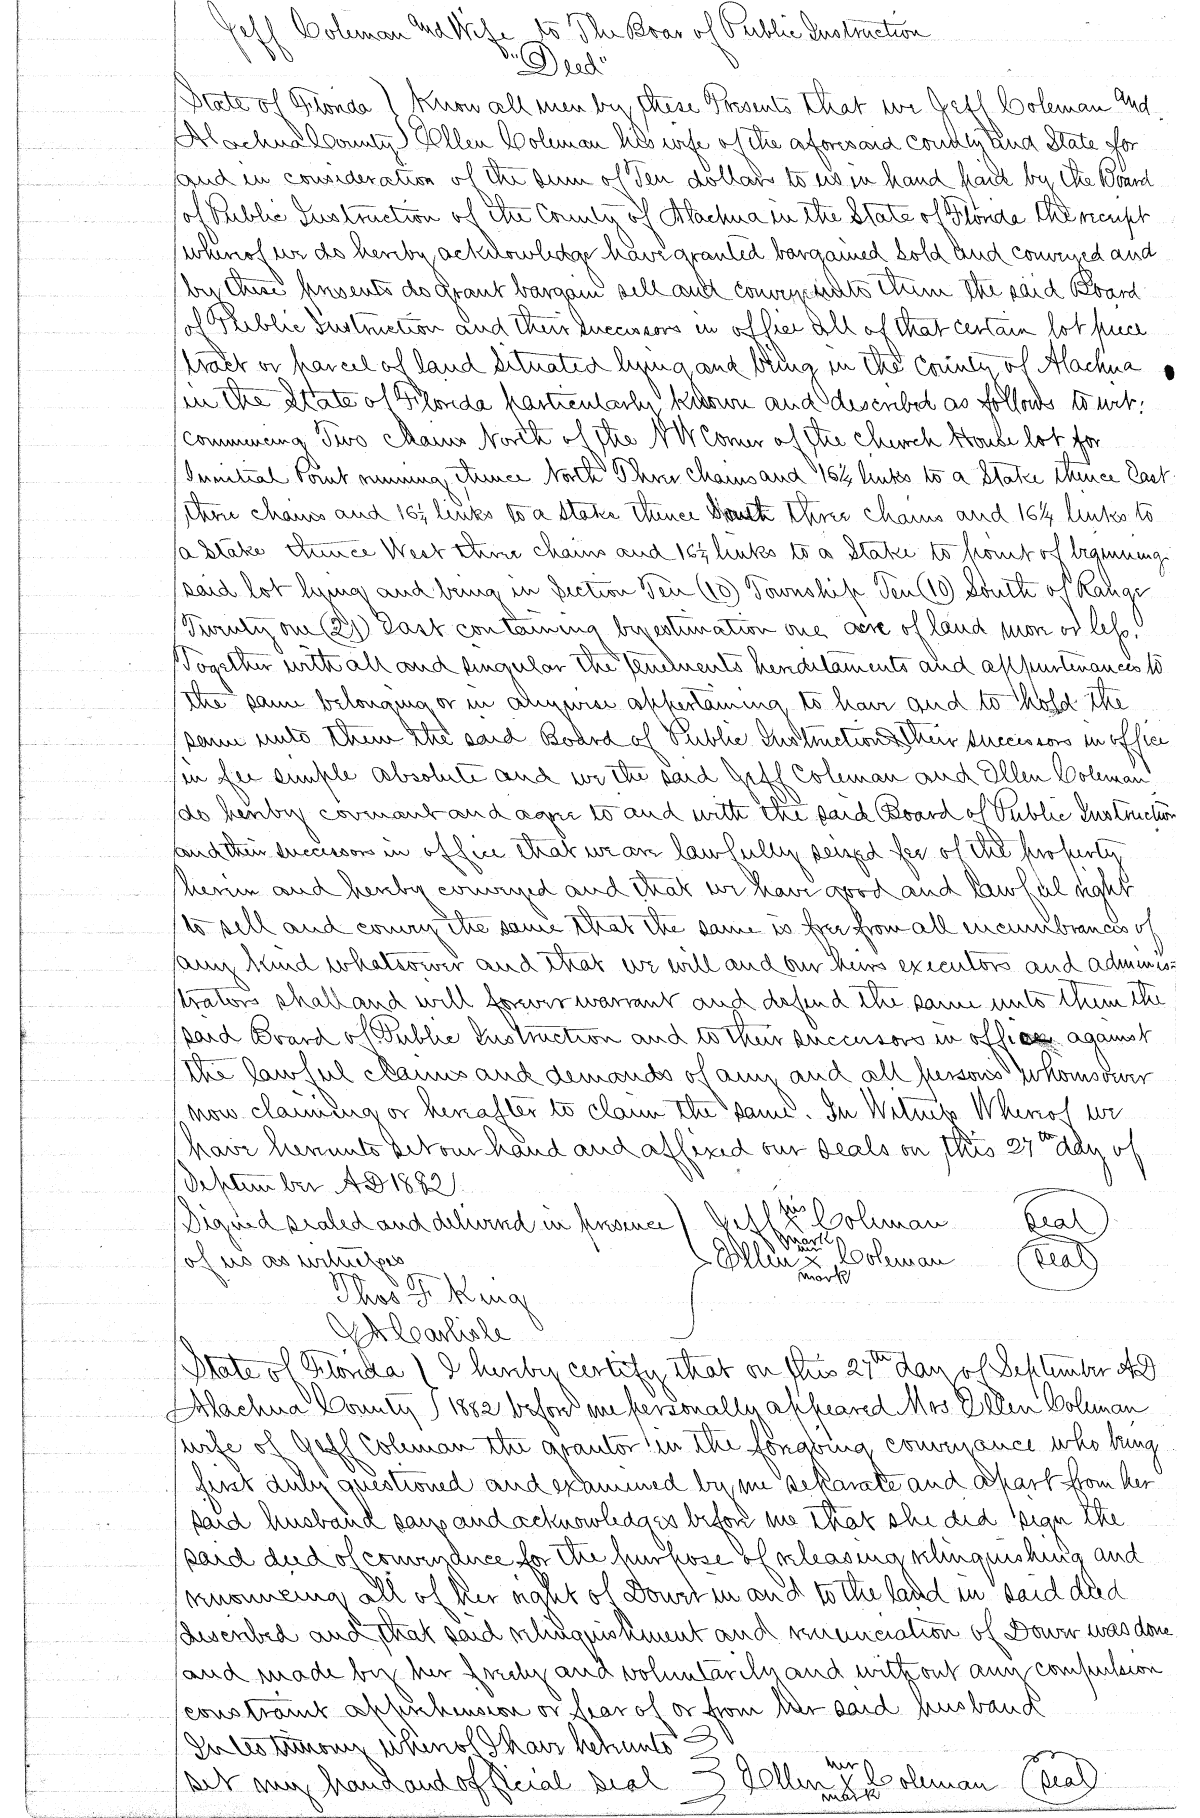 Jeff Coleman and Wife to The Boar of Public Instruction
"Deed"
State of Florida ) Know all men by these Presents that we Jeff Coleman and
Alachua County ) Ellen Coleman his wife of the aforesaid county and State for
and in consideration of the sum of Ten dollars to us in hand paid by the Board
of Public Instruction of the County of Alachua in the State of Florida the receipt
whereof we do hereby acknowledge have granted bargained sold and conveyed and
by these presents do grant bargain sell and convey unto them the said Board
of Public Instruction and their successors in office all of that certain lot piece
tract or parcel of land situated lying and being in the county of Alachua
in the State of Florida particularly known and described as follows to wit:
commencing Two chains North of the NW Corner of the church House lot for
Innitial Point running thence North Three Chains and 16¼ links to a Stake thence East
three chains and 16¼ links to a Stake thence South three chains and 16¼ links to
a Stake thence West three chains and 16¼ links to a Stake to point of beginning
said lot lying and being in Section Ten (10) Township Ten (10) South of Range
Twenty one (21) East containing by estimation one acre of land more or less.
Together with all and singular the tenements hereditaments and appurtenances to
the same belonging or in anywise appertaining to have and to hold the
same unto them the said Board of Public Instruction & their successors in office
in fee simple absolute and we the said Jeff Coleman and Ellen Coleman
do hereby covenant and agree to and with the said Board of Public Instruction
and their successors in office that we are lawfully seized fee of the property
herein and hereby conveyed and that we have good and lawful right
to sell and convey the same that the same is free from all incumbrances of
any kind whatsoever and that we will and our heirs executors and adminis-
trators shall and will forever warrant and defend the same unto them the
said Board of Public Instruction and to their successors in office against
the lawful claims and demands of any and all persons whomsoever
now claiming or hereafter to claim the same. In Witness Whereof we
have hereunto set our hand and affixed our seals on this 27th day of
September AD 1882
Signed sealed and delivered in presence ) Jeff his x mark Coleman (seal)
of us as witnesses Ellen her x mark Coleman (seal)
Thos F. King
Carlisle
State of Florida ) I hereby certify that on this 27th day of September AD
Alachua County ) 1882 before me personally appeared Mrs Ellen Coleman
wife of Jeff Coleman the grantor in the forgoing conveyance who being
first duly questioned and examined by me separate and apart from her
said husband says and acknowledges before me that she did sign the
said deed of conveyance for the purpose of releasing relinquishing and
renouncing all of her right of Dower in and to the land in said deed
described and that said relinquishment and renunciation of Dower was done
and made by her freely and voluntarily and without any compulsion
constraint apprehension or fear of or from her said husband
In testimony whereof I have hereunto
set my hand and official seal Ellen her x mark Coleman (seal)